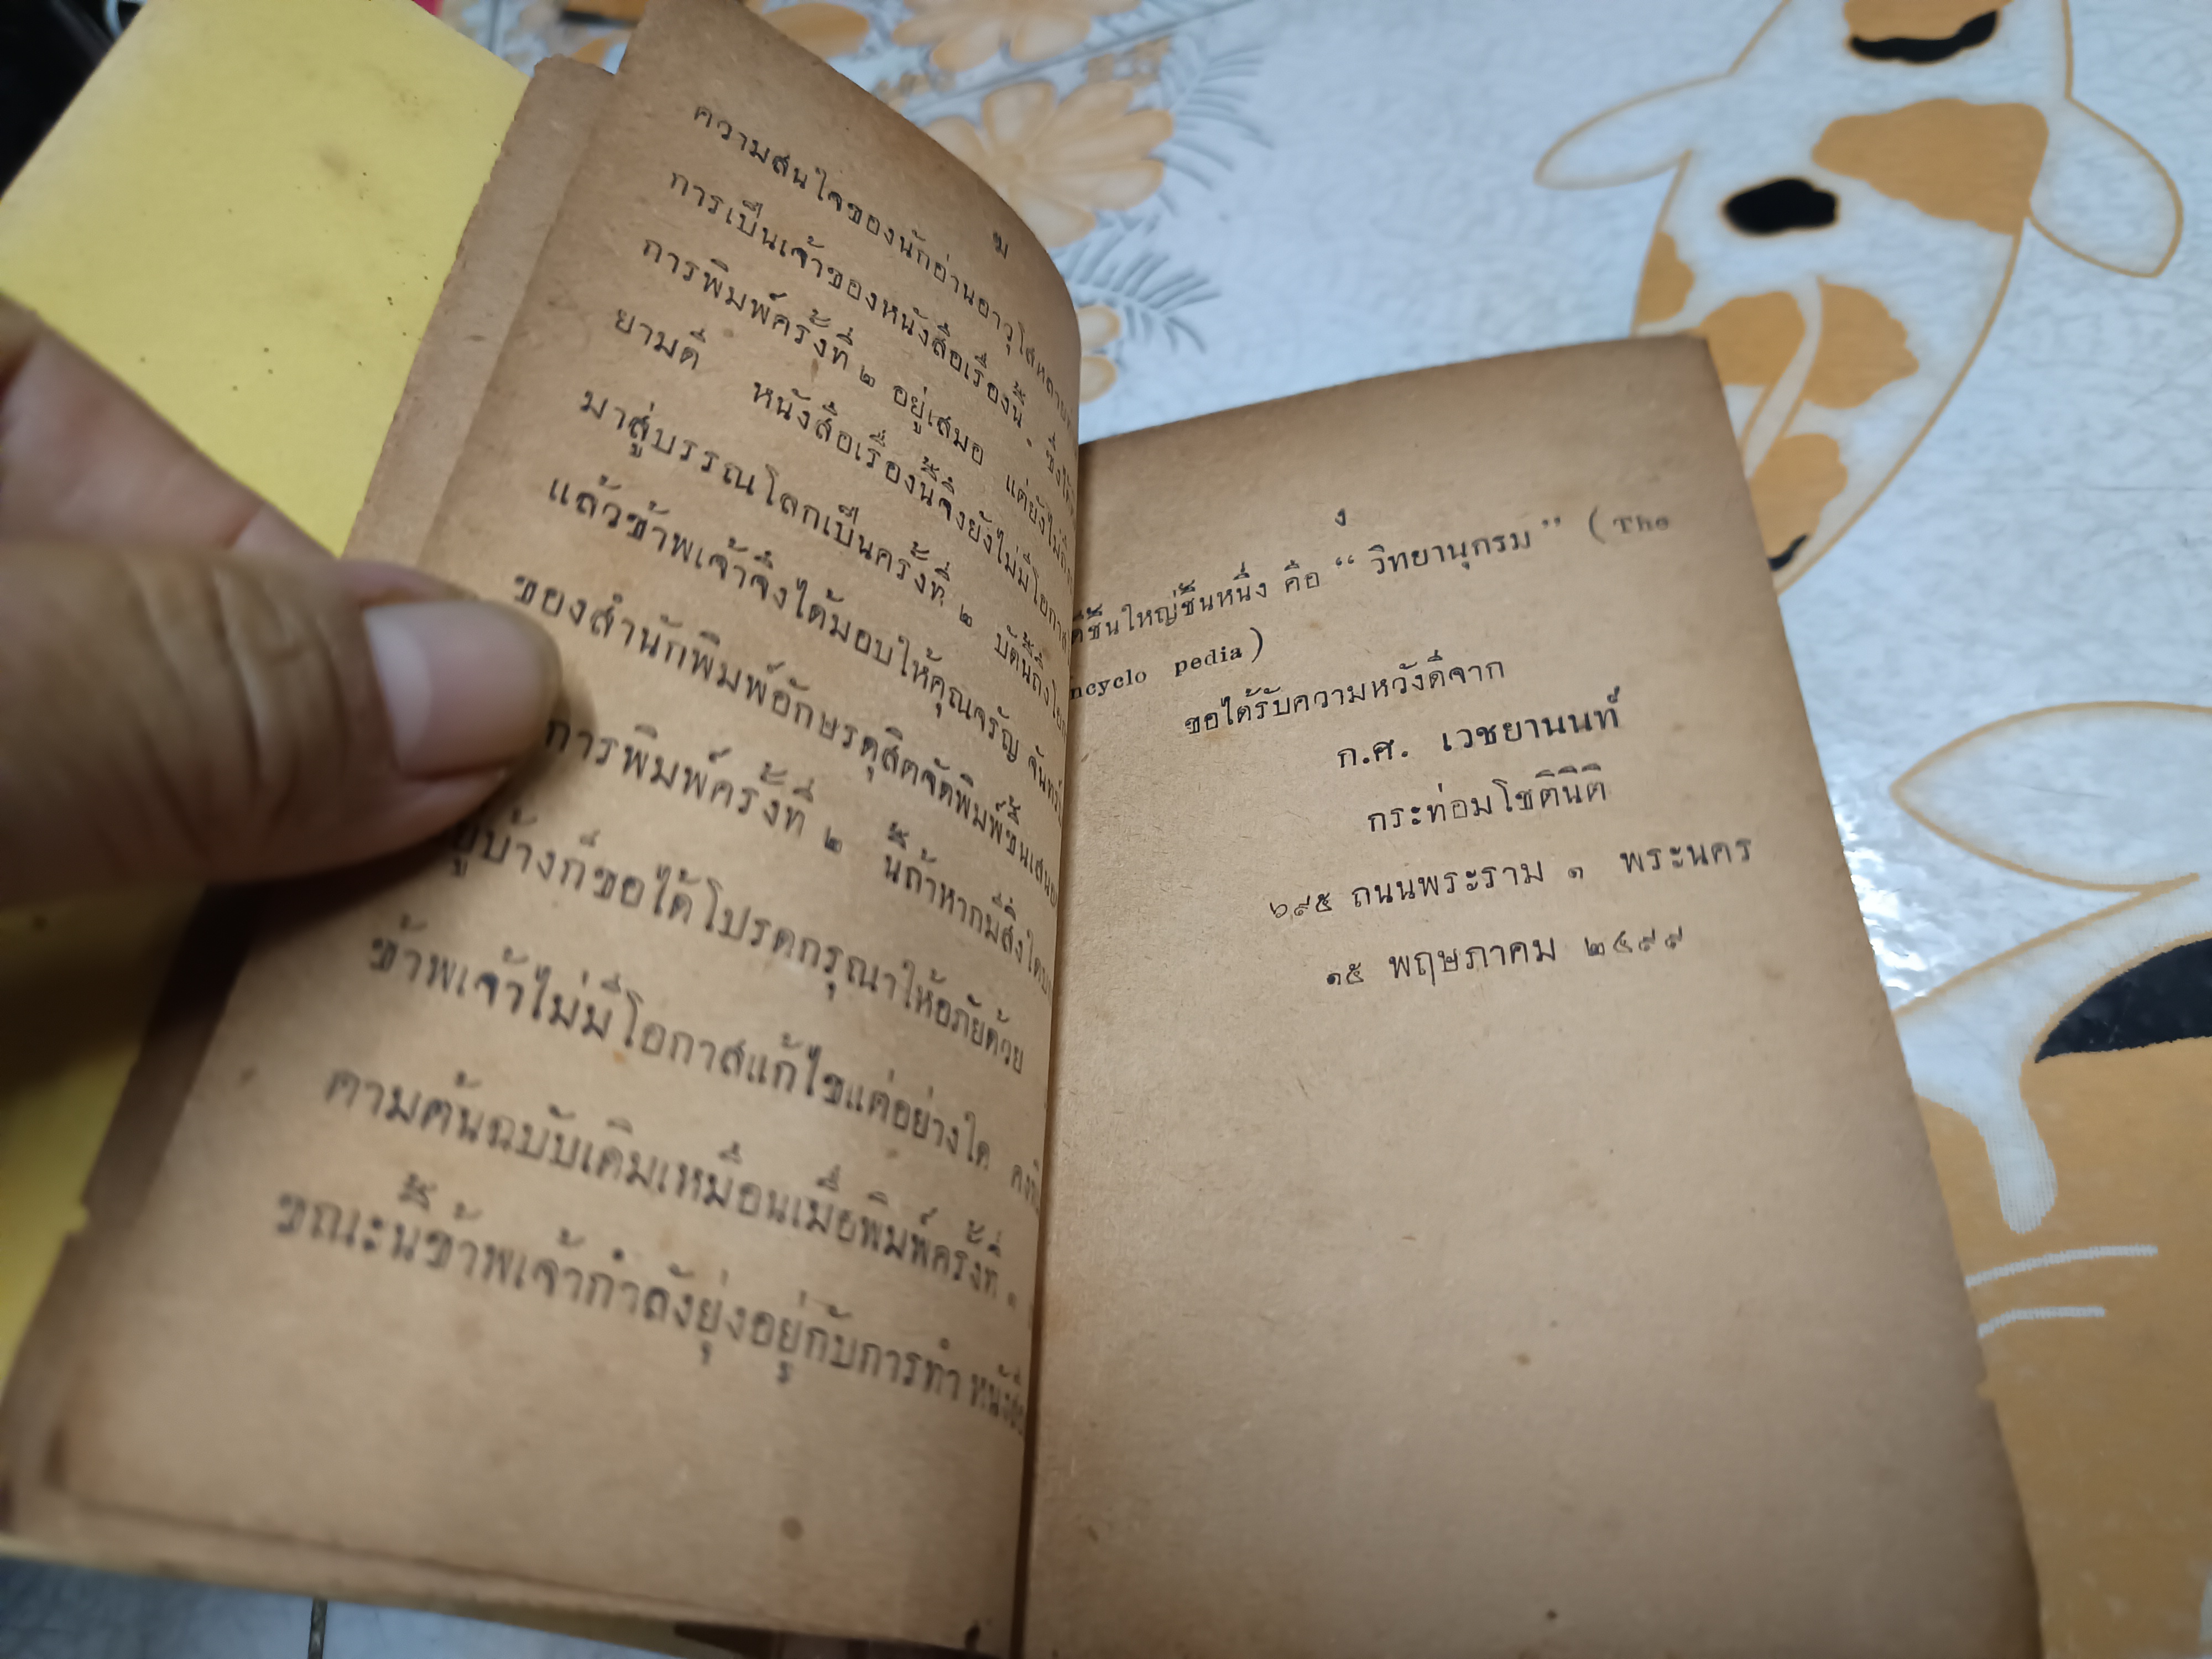 ฆ
ความสนใจของนักอ่านอาวุโสหลาย
การเป็นเจ้าของหนังสือเรื่องนี้ . ซึ่งได้
การพิมพ์ครั้งที่ ๒ อยู่เสมอ แต่ยังไม่ถึง
ยามดี หนังสือเรื่องนี้จึงยังไม่มีโอกาส
มาสู่บรรณโลกเป็นครั้งที่ ๒ บัดนี้ถึง
แล้วข้าพเจ้าจึงได้มอบให้คุณจรัญ จันทร์
ของสำนักพิมพ์อักษรดุสิตจัดพิมพ์ขึ้นเสนอ
การพิมพ์ครั้งที่ ๒ นี้ถ้าหากมีสิ่งใด
อยู่บ้างก็ขอได้โปรดกรุณาให้อภัยด้วย
ข้าพเจ้าไม่มีโอกาสแก้ไขแต่อย่างใด คง
ตามต้นฉบับเดิมเหมือนเมื่อพิมพ์ครั้งที่ ๑
ขณะนี้ข้าพเจ้ากำลังยุ่งอยู่กับการทำ หนังสือ
ง
ดีชิ้นใหญ่ชิ้นหนึ่ง คือ “ วิทยานุกรม ” ( The
ncyclo pedia )
ขอได้รับความหวังดีจาก
ก.ศ. เวชยานนท์
กระท่อมโชตินิติ
๖๙๕ ถนนพระราม ๑ พระนคร
๑๕ พฤษภาคม ๒๔๙๙